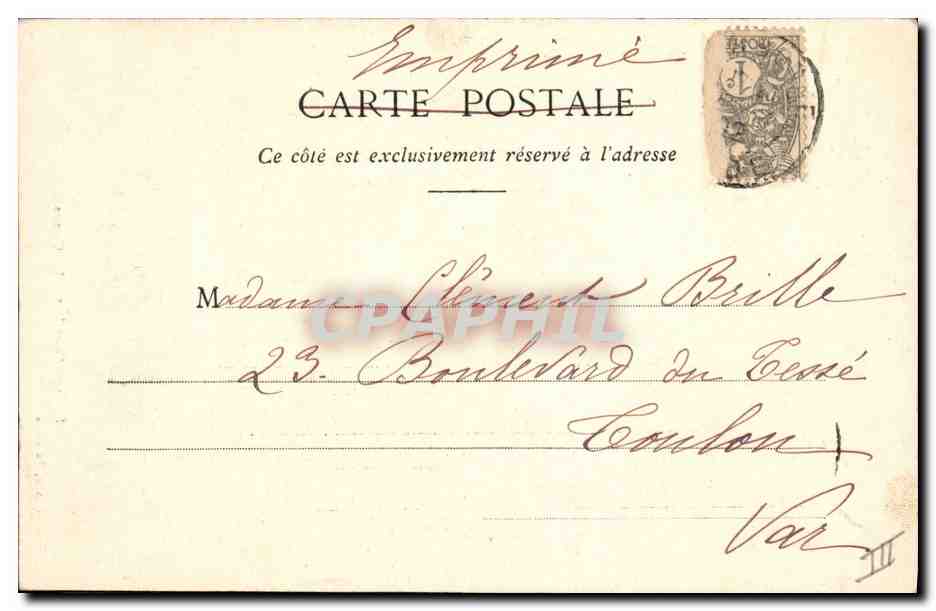 Emprimé
CARTE POSTALE
Ce côté est exclusivement réservé à l'adresse
Madame Clément Brille
CPAPHIL
23. Boulevard du Tessé
Toulon
Var
III